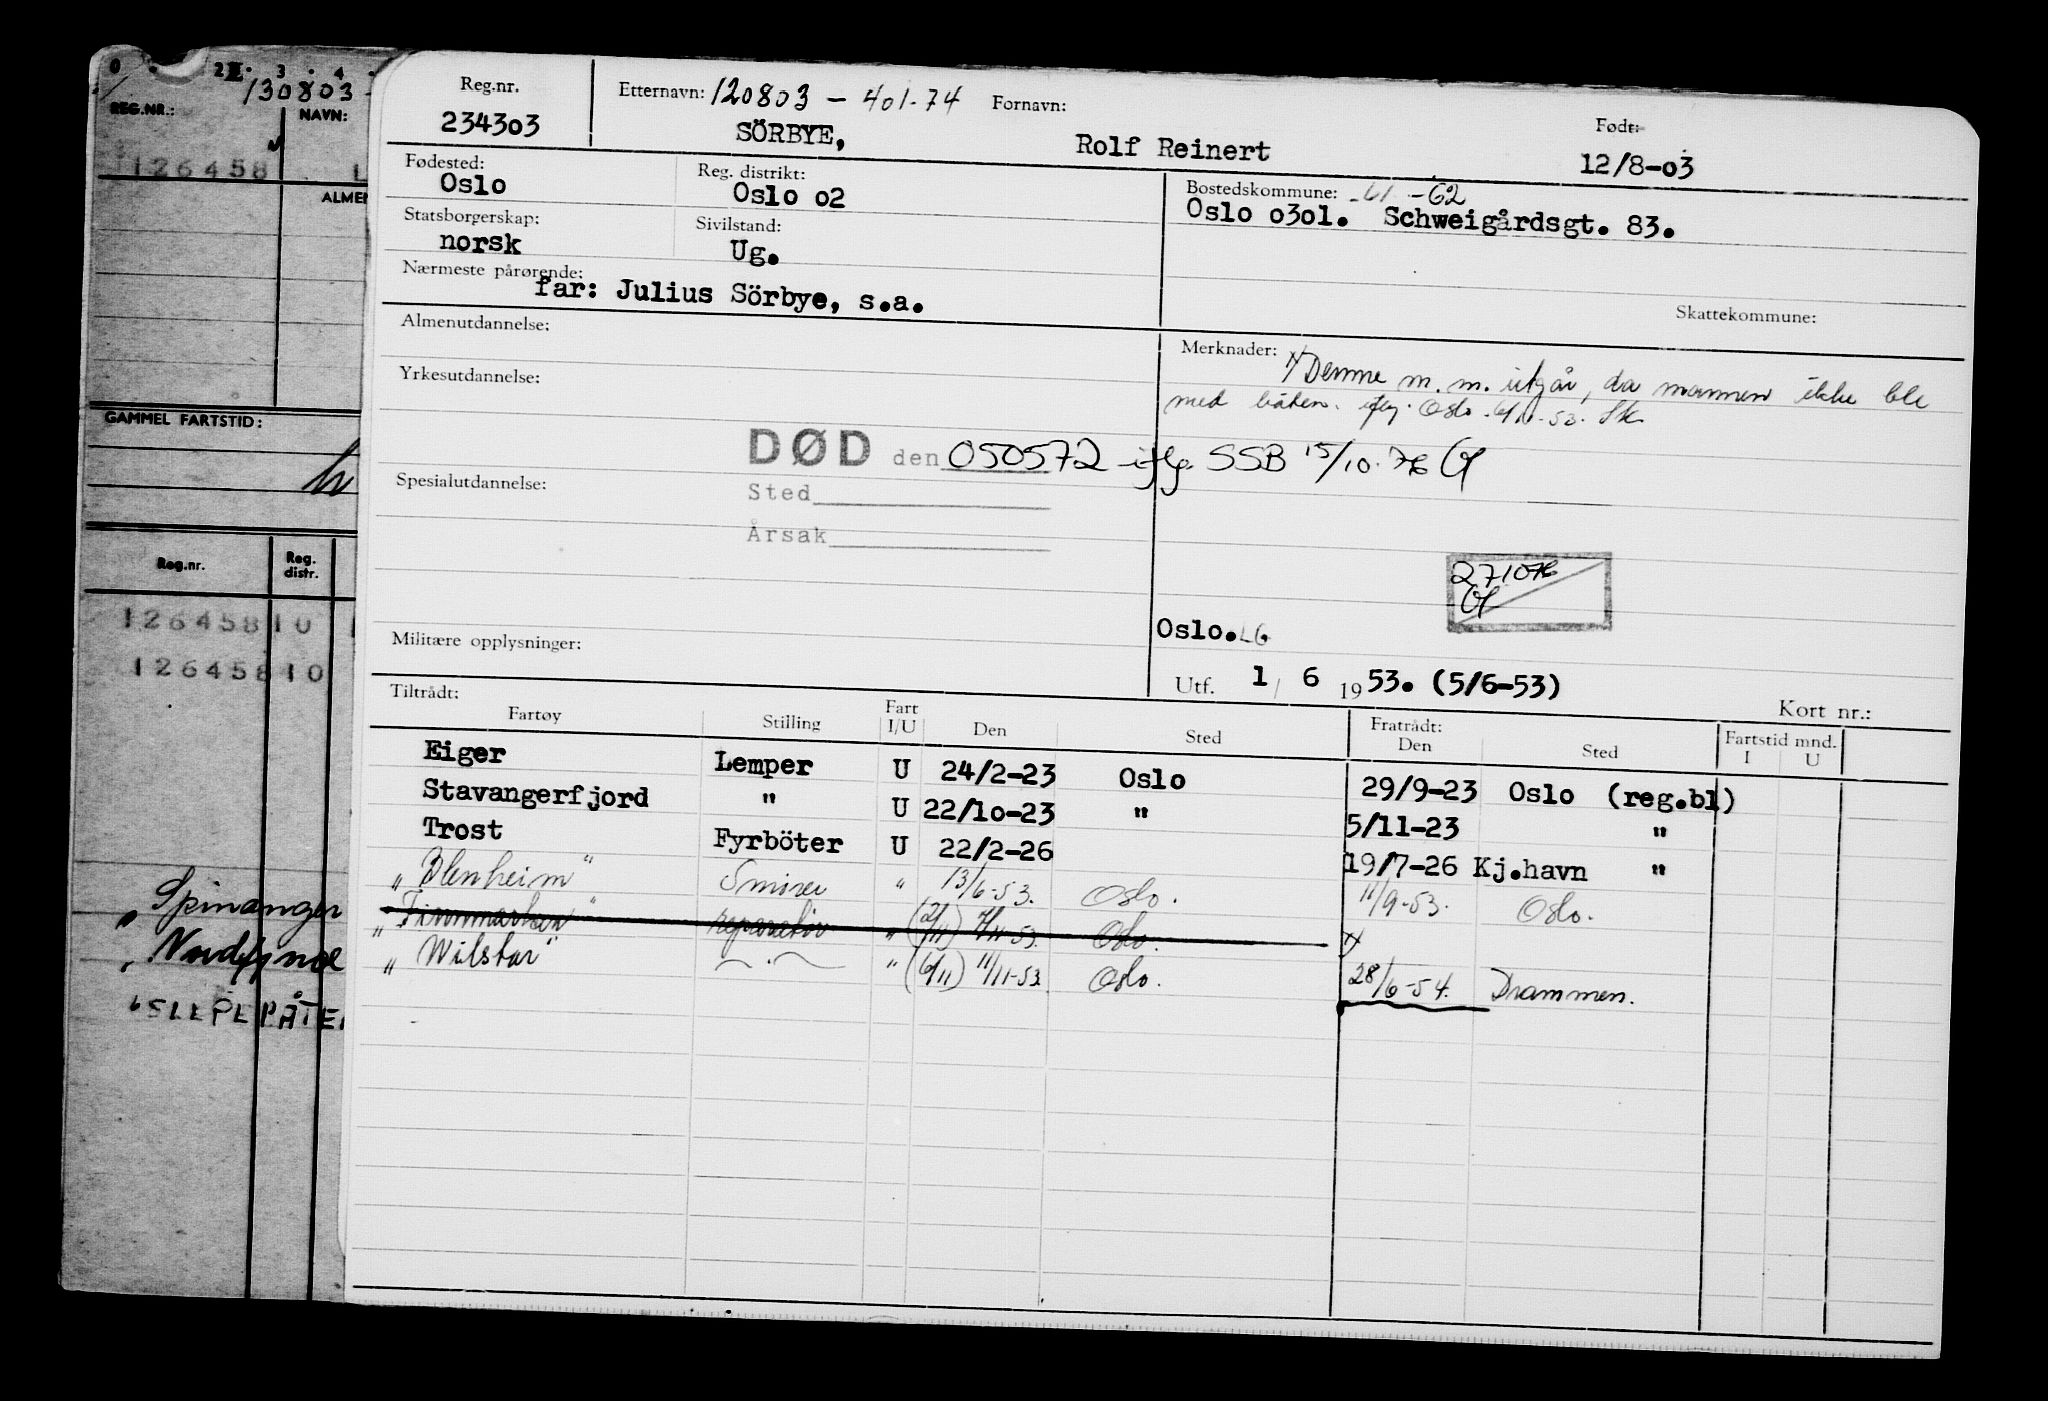 0 2 3 4
130803
REG.NR.: NAVN:
126458 L
ALMEN
GAMMEL FARTSTID:
Reg.nr. Reg. distr.
126458 10
126458 10
Spinanger
SLEPEBÅTE
Reg.nr. Etternavn: 120803 - 401-74 Fornavn: Født:
234303 SÖRBYE, Rolf Reinert 12/8-03
Fødested: Reg. distrikt: Bostedskommune: -61 -62
Oslo Oslo o2 Oslo o3ol. Schweigårdsgt. 83.
Statsborgerskap: Sivilstand:
norsk Ug.
Nærmeste pårørende:
far: Julius Sörbye, s.a.
Skattekommune:
Almenutdannelse: Merknader: x) Denne m.m. utgår, da mannen ikke ble
med båten. iflg. Oslo 6/11-53. Sk
Yrkesutdannelse:
DØD den 050572 iflg. SSB 15/10.76
Spesialutdannelse: Sted
Årsak
271076
Oslo. LG
Militære opplysninger:
Utf. 1 / 6 1953. (5/6-53)
Kort nr.:
Tiltrådt: Fratrådt: Fartstid mnd.
Fartøy Stilling Fart I/U Den Sted Den Sted I U
Eiger Lemper U 24/2-23 Oslo 29/9-23 Oslo (reg.bl)
Stavangerfjord " U 22/10-23 " 5/11-23 "
Trost Fyrböter U 22/2-26 19/7-26 Kj.havn "
"Blenheim" Smører " 13/6-53. Oslo. 11/9-53. Oslo.
"Finnmarken" reparatör " (2/11) 7/11-53. Oslo. x)
"Wilstar" " (6/11) 11/11-53. Oslo. 28/6-54. Drammen.